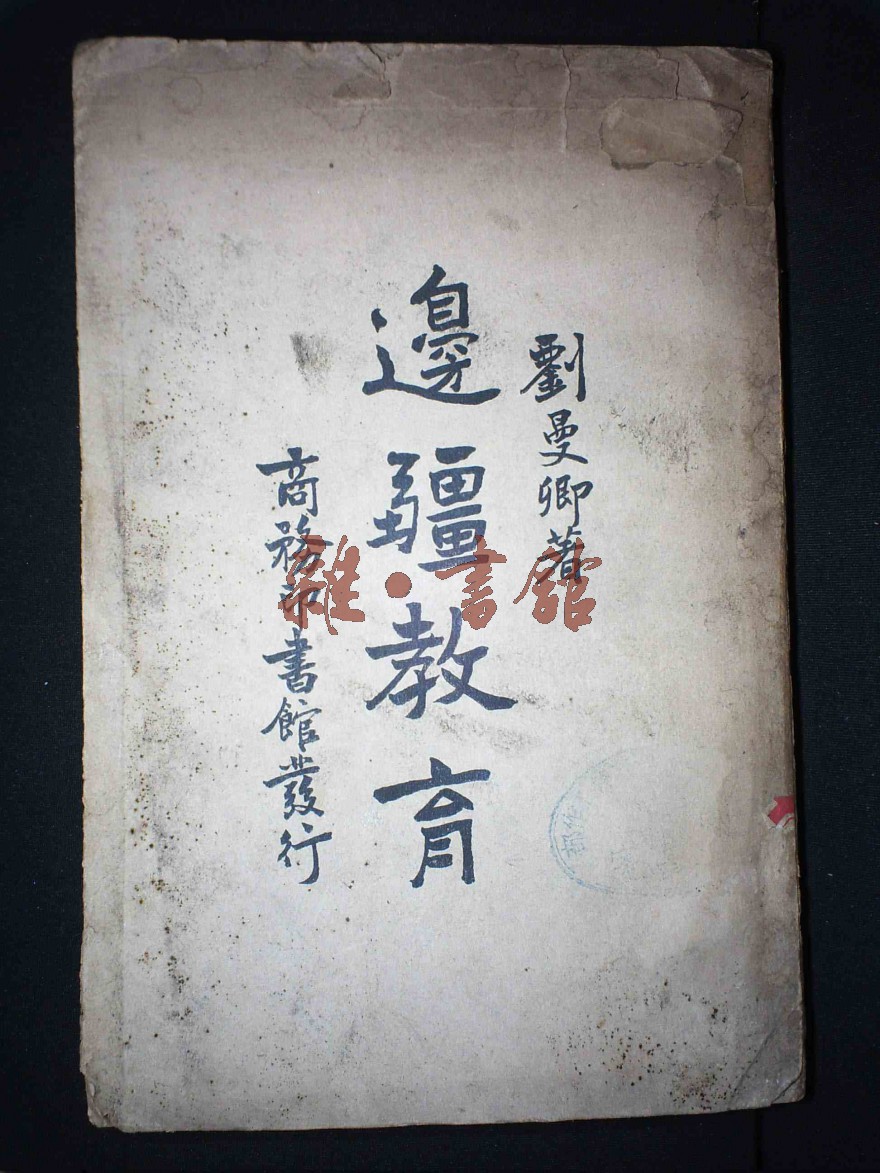 劉曼卿著
邊疆教育
商務印書館發行
雜·書館